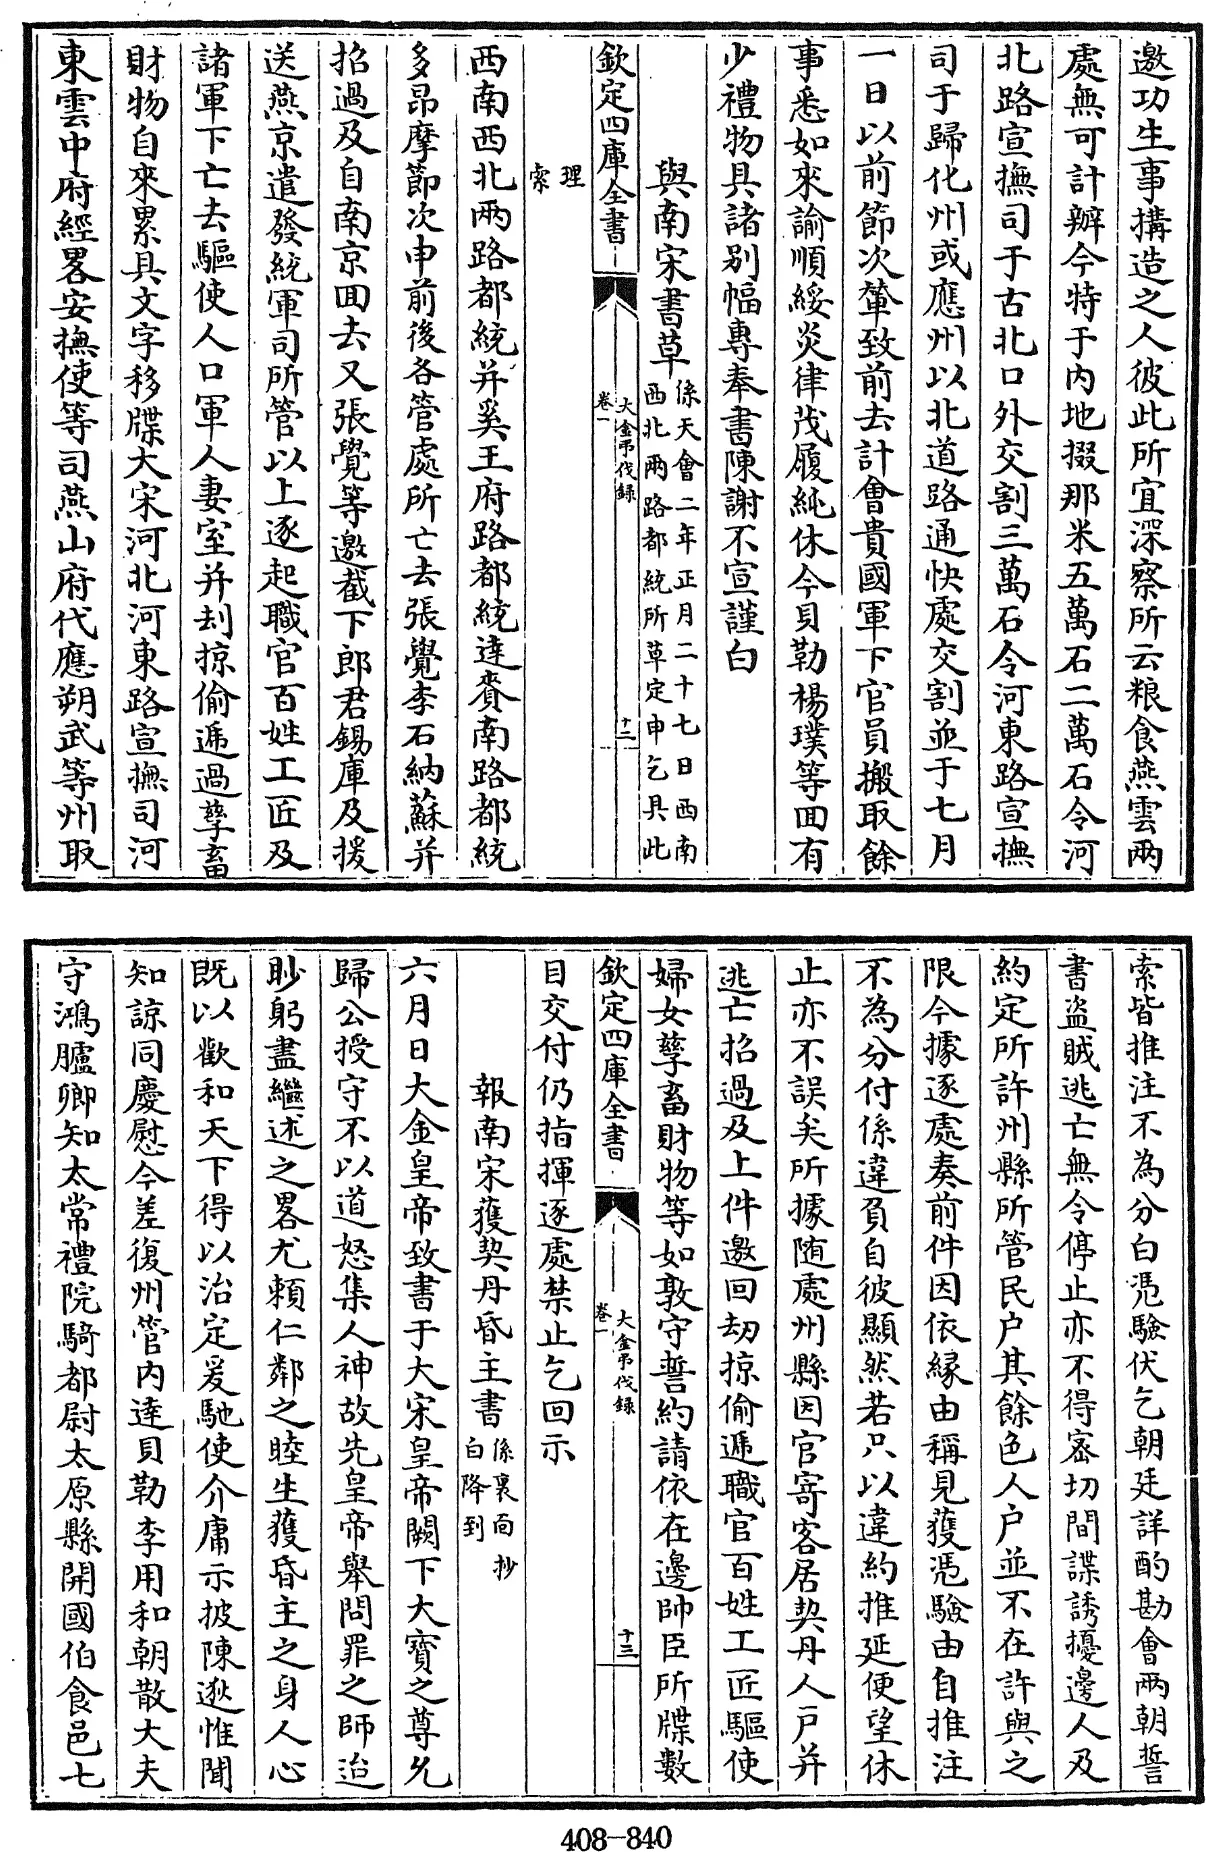 邀功生事搆造之人彼此所宜深察所云粮食燕雲兩
處無可計辦今特于内地掇那米五萬石二萬石令河
北路宣撫司于古北口外交割三萬石令河東路宣撫
司于歸化州或應州以北道路通快處交割並于七月
一日以前節次輦致前去計會貴國軍下官員搬取餘
事悉如來諭順綏炎律茂履純休今貝勒楊璞等回有
少禮物具諸别幅專奉書陳謝不宣謹白
與南宋書草係天會二年正月二十七日西南
西北兩路都統所草定申乞具此
欽定四庫全書
大金弔伐録
卷一
十二
理
索
西南西北兩路都統并奚王府路都統達賚南路都統
多昂摩節次申前後各管處所亡去張覺李石納蘇并
招過及自南京回去又張覺等邀截下郎君錫庫及援
送燕京遣發統軍司所管以上逐起職官百姓工匠及
諸軍下亡去驅使人口軍人妻室并刦掠偷遞過孳畜
財物自來累具文字移牒大宋河北河東路宣撫司河
東雲中府經畧安撫使等司燕山府代應朔武等州取
索皆推注不為分白憑驗伏乞朝廷詳酌勘會兩朝誓
書盗賊逃亡無令停止亦不得宻切間諜誘擾邊人及
約定所許州縣所管民户其餘色人户並不在許與之
限今據逐處奏前件因依縁由稱見獲憑驗由自推注
不為分付係違負自彼顯然若只以違約推延便望休
止亦不誤矣所據随處州縣因官寄客居契丹人户并
逃亡招過及上件邀回刼掠偷遞職官百姓工匠驅使
婦女孳畜財物等如敦守誓約請依在邊帥臣所牒數
目交付仍指揮逐處禁止乞回示
欽定四庫全書
大金弔伐録
卷一
十三
報南宋獲契丹昏主書係裏面抄
白降到
六月日大金皇帝致書于大宋皇帝闕下大寳之尊允
歸公授守不以道怒集人神故先皇帝舉問罪之師迨
眇躬盡繼述之畧尤頼仁鄰之睦生獲昏主之身人心
既以歡和天下得以治定爰馳使介庸示披陳逖惟聞
知諒同慶慰今差復州管内達貝勒李用和朝散大夫
守鴻臚卿知太常禮院騎都尉太原縣開國伯食邑七
408-840